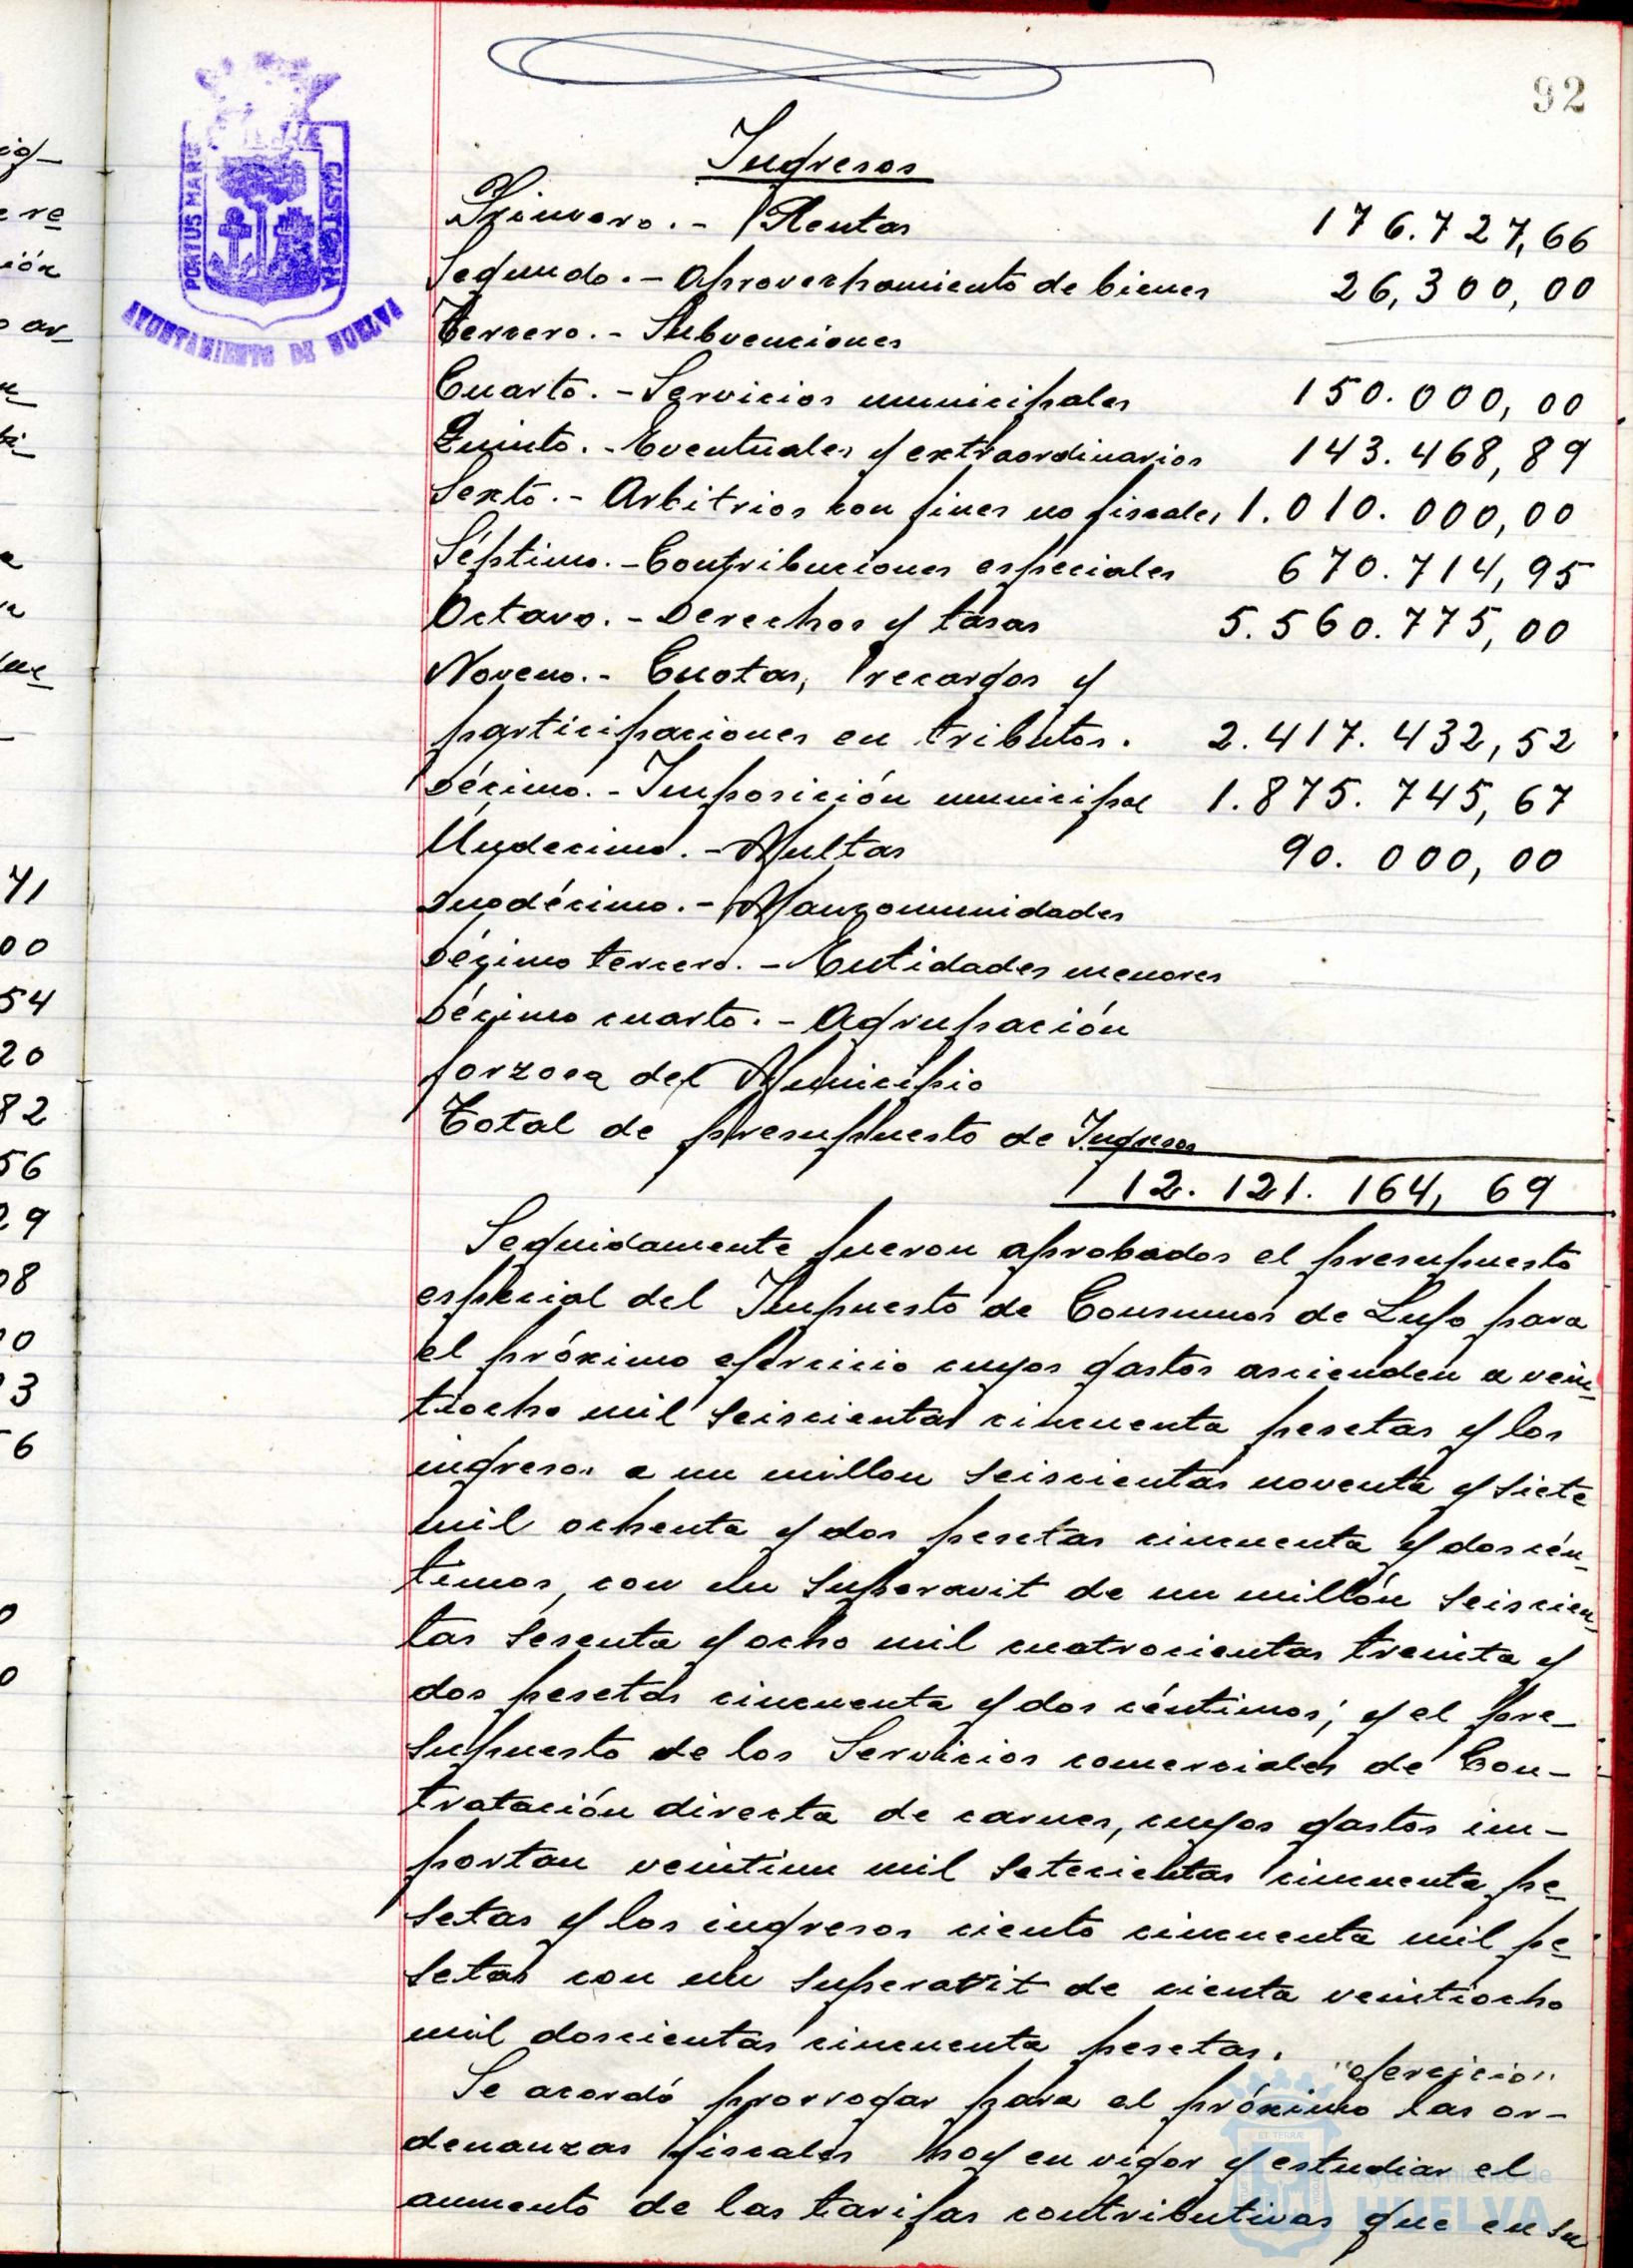 92
PORTUS MARIS CUSTODIA
AYUNTAMIENTO DE HUELVA
Ingresos
Primero.- Rentas 176.727,66
Segundo.- Aprovechamiento de bienes 26,300,00
Tercero.- Subvenciones
Cuarto.- Servicios municipales 150.000,00
Quinto.- Eventuales y extraordinarios 143.468,89
Sexto.- Arbitrios con fines no fiscales 1.010.000,00
Séptimo.- Contribuciones especiales 670.714,95
Octavo.- Derechos y tasas 5.560.775,00
Noveno.- Cuotas, recargos y
participaciones en tributos. 2.417.432,52
Décimo.- Imposición municipal 1.875.745,67
Undecimo.- Multas 90.000,00
Duodécimo.- Mancomunidades
Décimo tercero.- Entidades menores
Décimo cuarto.- Agrupación
forzosa del Municipio
Total de presupuesto de Ingresos
12.121.164,69
Seguidamente fueron aprobados el presupuesto
especial del Impuesto de Consumos de Lujo para
el próximo ejercicio cuyos gastos ascienden a vein-
tiocho mil seiscientas cincuenta pesetas y los
ingresos a un millon seiscientas noventa y siete
mil ochenta y dos pesetas cincuenta y dos cén-
timos, con un superavit de un millón seiscien-
tas sesenta y ocho mil cuatrocientas treinta y
dos pesetas cincuenta y dos céntimos; y el pre-
supuesto de los Servicios comerciales de Con-
tratación directa de carnes, cuyos gastos im-
portan veintiun mil setecientas cincuenta pe-
setas y los ingresos ciento cincuenta mil pe-
setas con un superavit de cienta veintiocho
mil doscientas cincuenta pesetas.
"ejercicio"
Se acordó prorrogar para el próximo las or-
denanzas fiscales hoy en vigor y estudiar el
aumento de las tarifas contributivas que en su
Ayuntamiento de
HUELVA